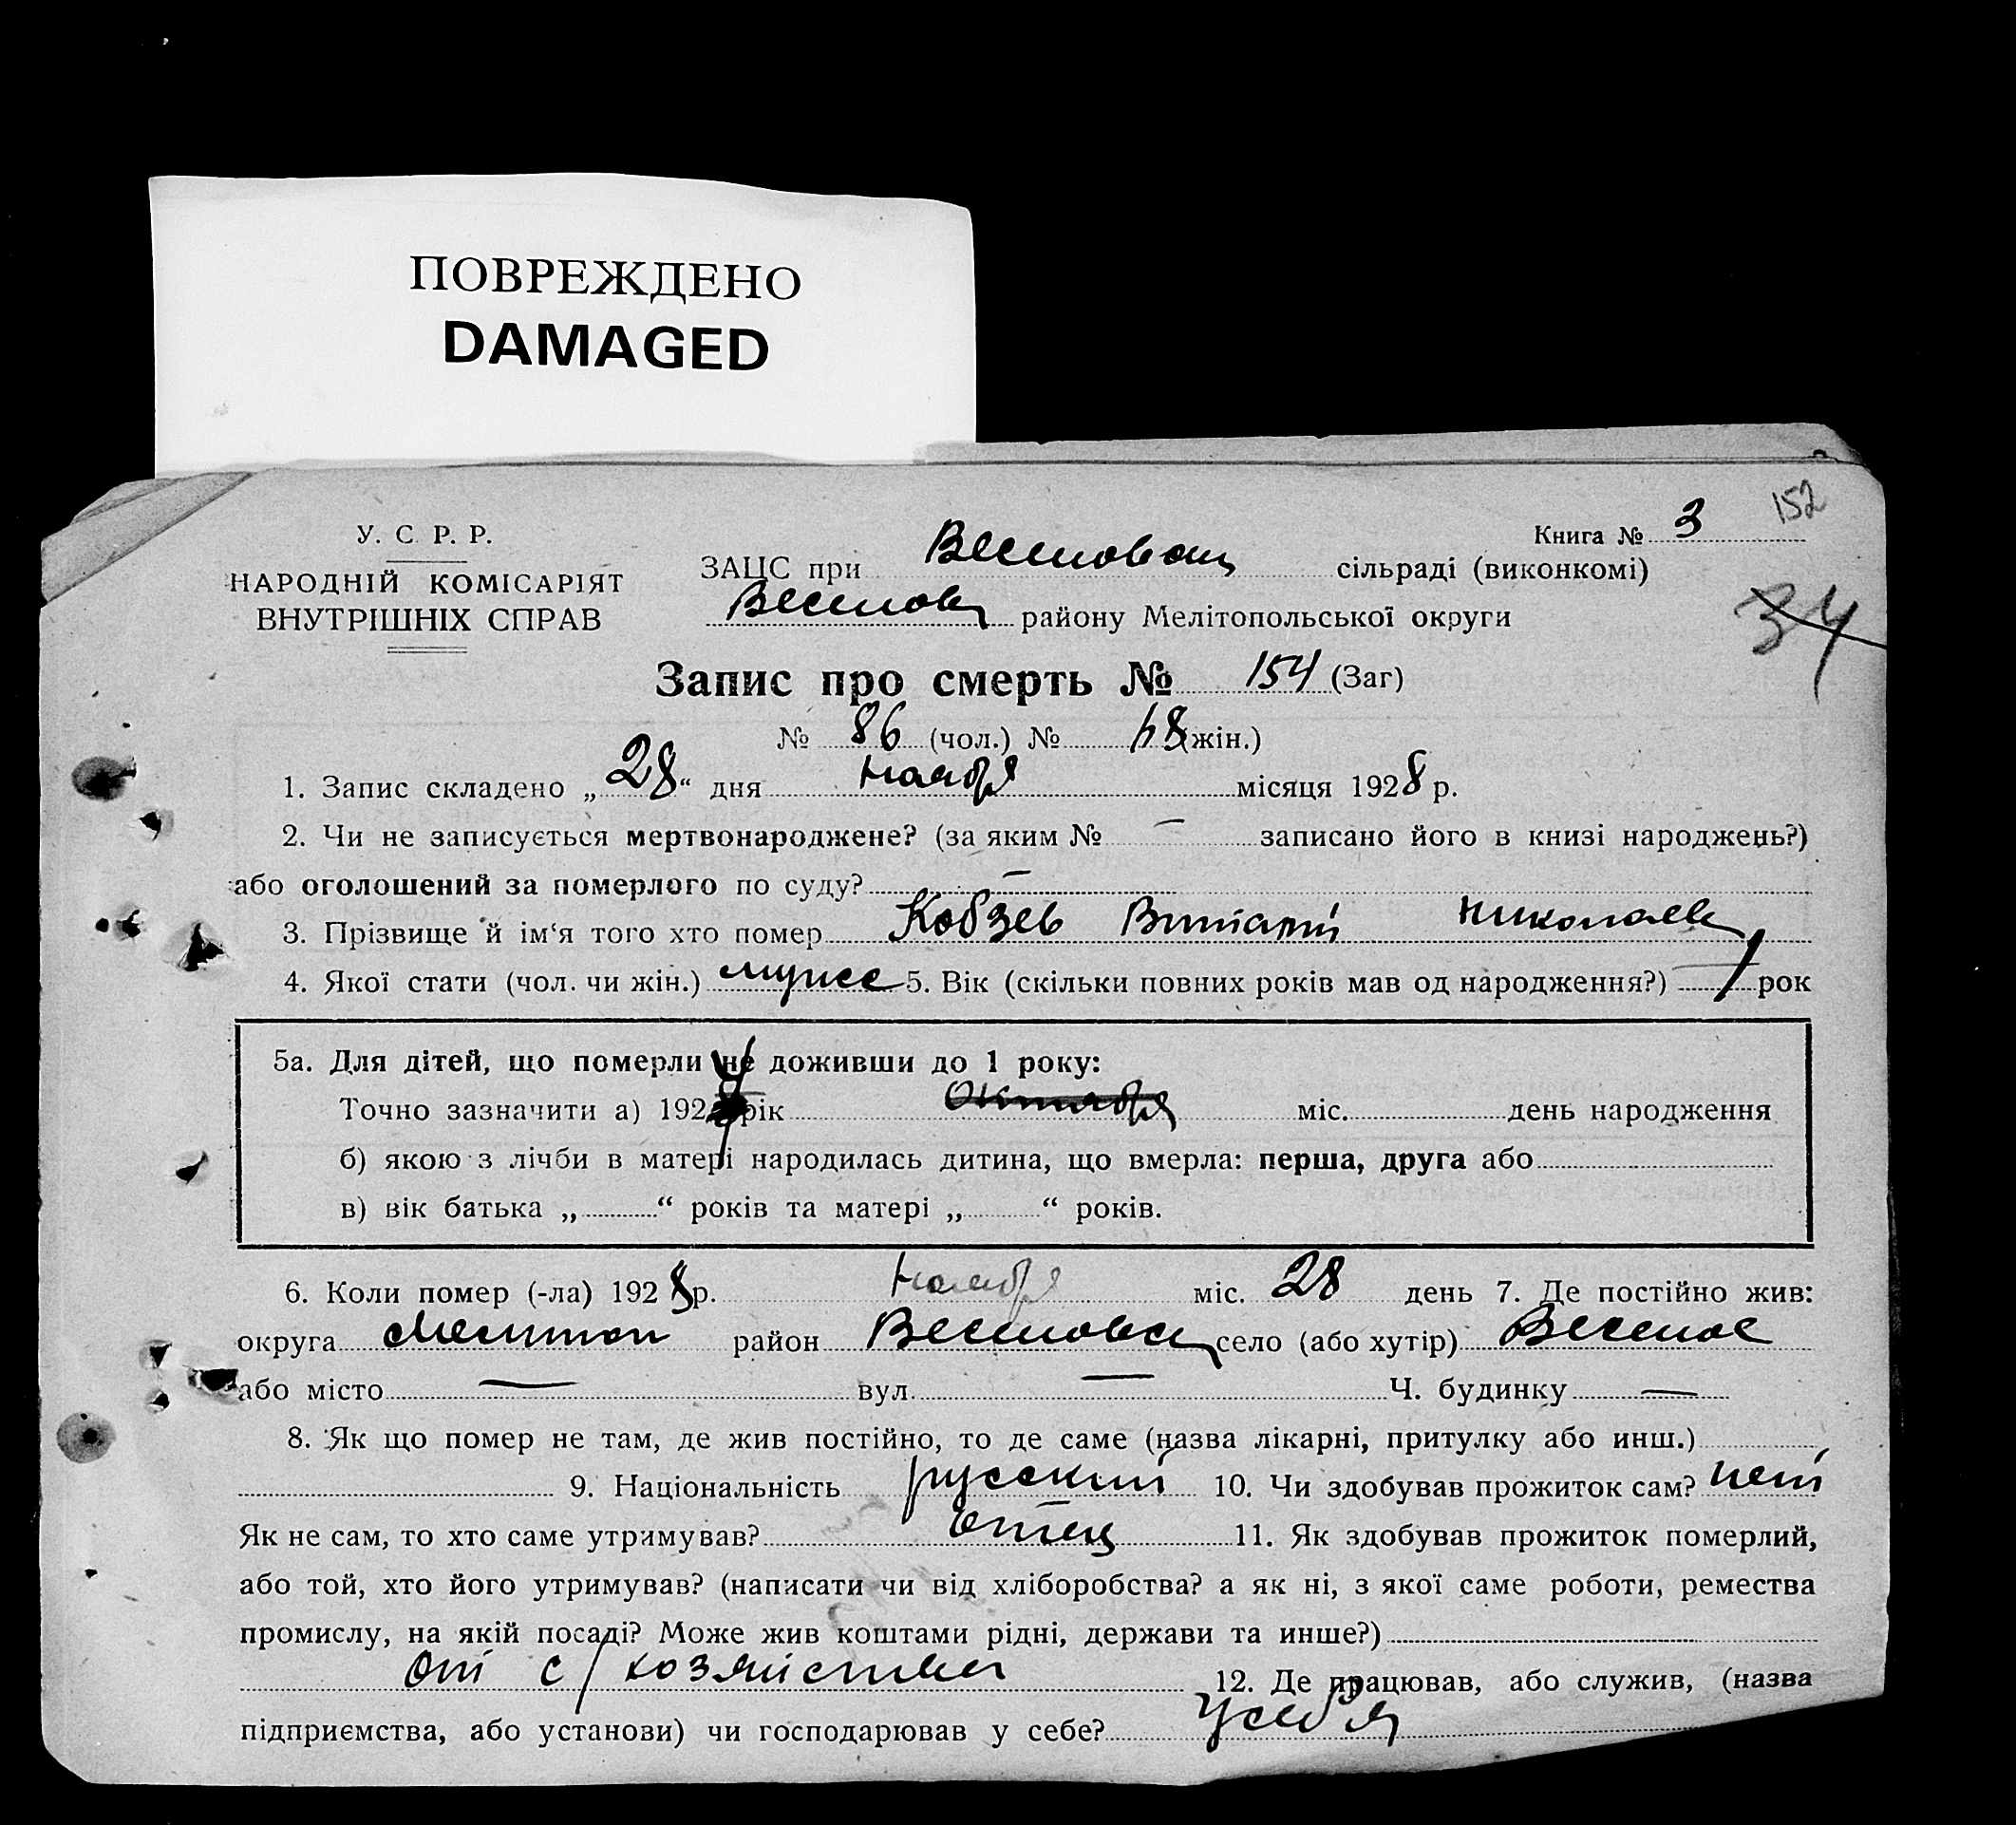 ПОВРЕЖДЕНО
DAMAGED
152
У. С. Р. Р.
Книга № 3
НАРОДНІЙ КОМІСАРІЯТ
ВНУТРІШНІХ СПРАВ
ЗАЦС при Веселовск сільраді (виконкомі)
Веселовск району Мелітопольської округи
34
Запис про смерть № 154 (Заг)
№ 86 (чол.) № 68 (жін.)
1. Запис складено „28“ дня ноября місяця 1928 р.
2. Чи не записується мертвонароджене? (за яким № — записано його в книзі народжень?)
або оголошений за померлого по суду? —
3. Прізвище й ім‘я того хто помер Кобзев Виталий Николаев
4. Якої стати (чол. чи жін.) мужс 5. Вік (скільки повних років мав од народження?) 1 рок
5а. Для дітей, що померли не доживши до 1 року:
Точно зазначити а) 192 рік Октября міс. день народження
б) якою з лічби в матері народилась дитина, що вмерла: перша, друга або
в) вік батька „ “ років та матері „ “ років.
6. Коли помер (-ла) 1928 р. ноября міс. 28 день 7. Де постійно жив:
округа Мелитоп район Веселовск село (або хутір) Веселое
або місто — вул. — Ч. будинку —
8. Як що помер не там, де жив постійно, то де саме (назва лікарні, притулку або инш.)
9. Національність русский 10. Чи здобував прожиток сам? нет
Як не сам, то хто саме утримував? Отец 11. Як здобував прожиток померлий,
або той, хто його утримував? (написати чи від хліборобства? а як ні, з якої саме роботи, ремества
промислу, на якій посаді? Може жив коштами рідні, держави та инше?)
от с/хозяйства 12. Де працював, або служив, (назва
підприємства, або установи) чи господарював у себе? У себя